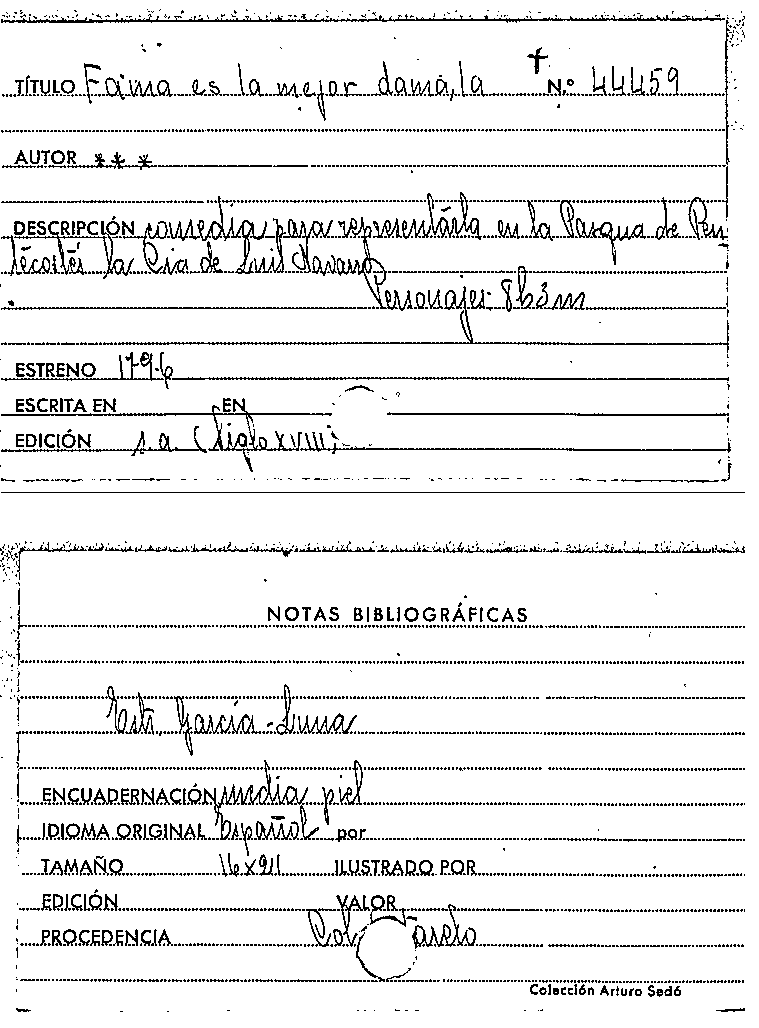 TÍTULO Fama es la mejor dama, la N.º 44459
AUTOR * * *
DESCRIPCIÓN comedia para representarla en la Pasqua de Pen-
tecostés la Cia de Luis Navarro
Personajes: 8h3m
ESTRENO 1796
ESCRITA EN EN
EDICIÓN s.a. (Siglo XVIII)
NOTAS BIBLIOGRÁFICAS
Estr. García-Luna
ENCUADERNACIÓN media piel
IDIOMA ORIGINAL Español por
TAMAÑO 16x21 ILUSTRADO POR
EDICIÓN VALOR
PROCEDENCIA Col
Colección Arturo Sedó